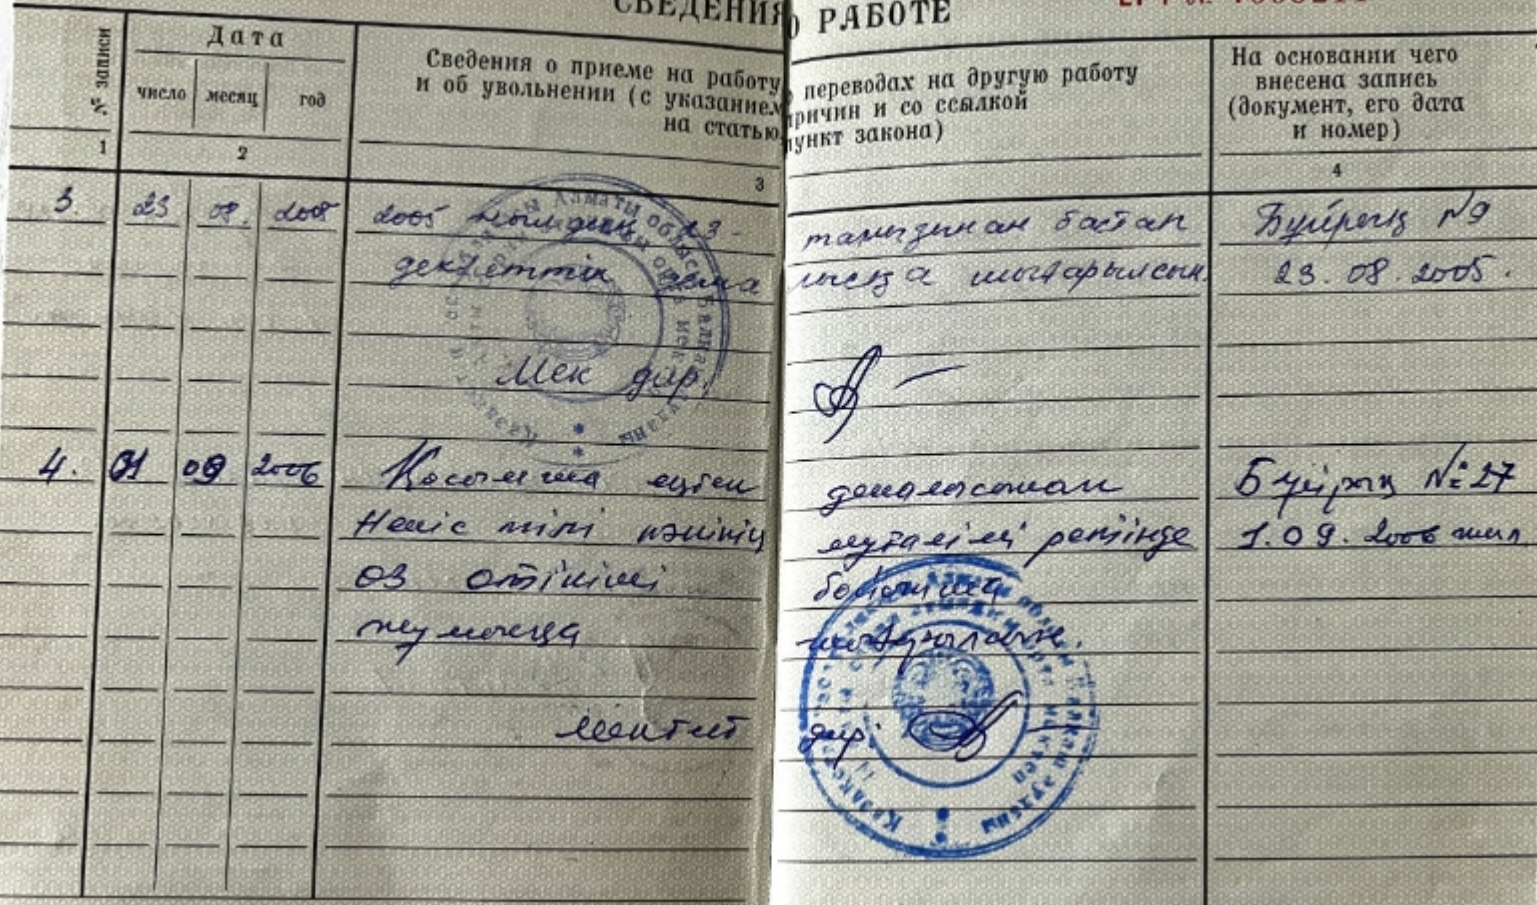 СВЕДЕНИЯ О РАБОТЕ
№ записи
Дата
число месяц год
Сведения о приеме на работу переводах на другую работу
и об увольнении (с указанием причин и со ссылкой
на статью пункт закона)
На основании чего
внесена запись
(документ, его дата
и номер)
1 2 3 4
3. 23 08. 2005 2005 жылдың 23- тамызынан бастап Бұйрық №9
декреттік дема лысқа шығарылсын. 23.08.2005.
Мек дир.
4. 01 09 2006 Қосымша еңбек демалысынан Бұйрық №27
Неміс тілі пәнінің мұғалімі ретінде 1.09.2006 жыл
өз өтініші бойынша
жұмысқа шығарылсын.
мектеп дир.